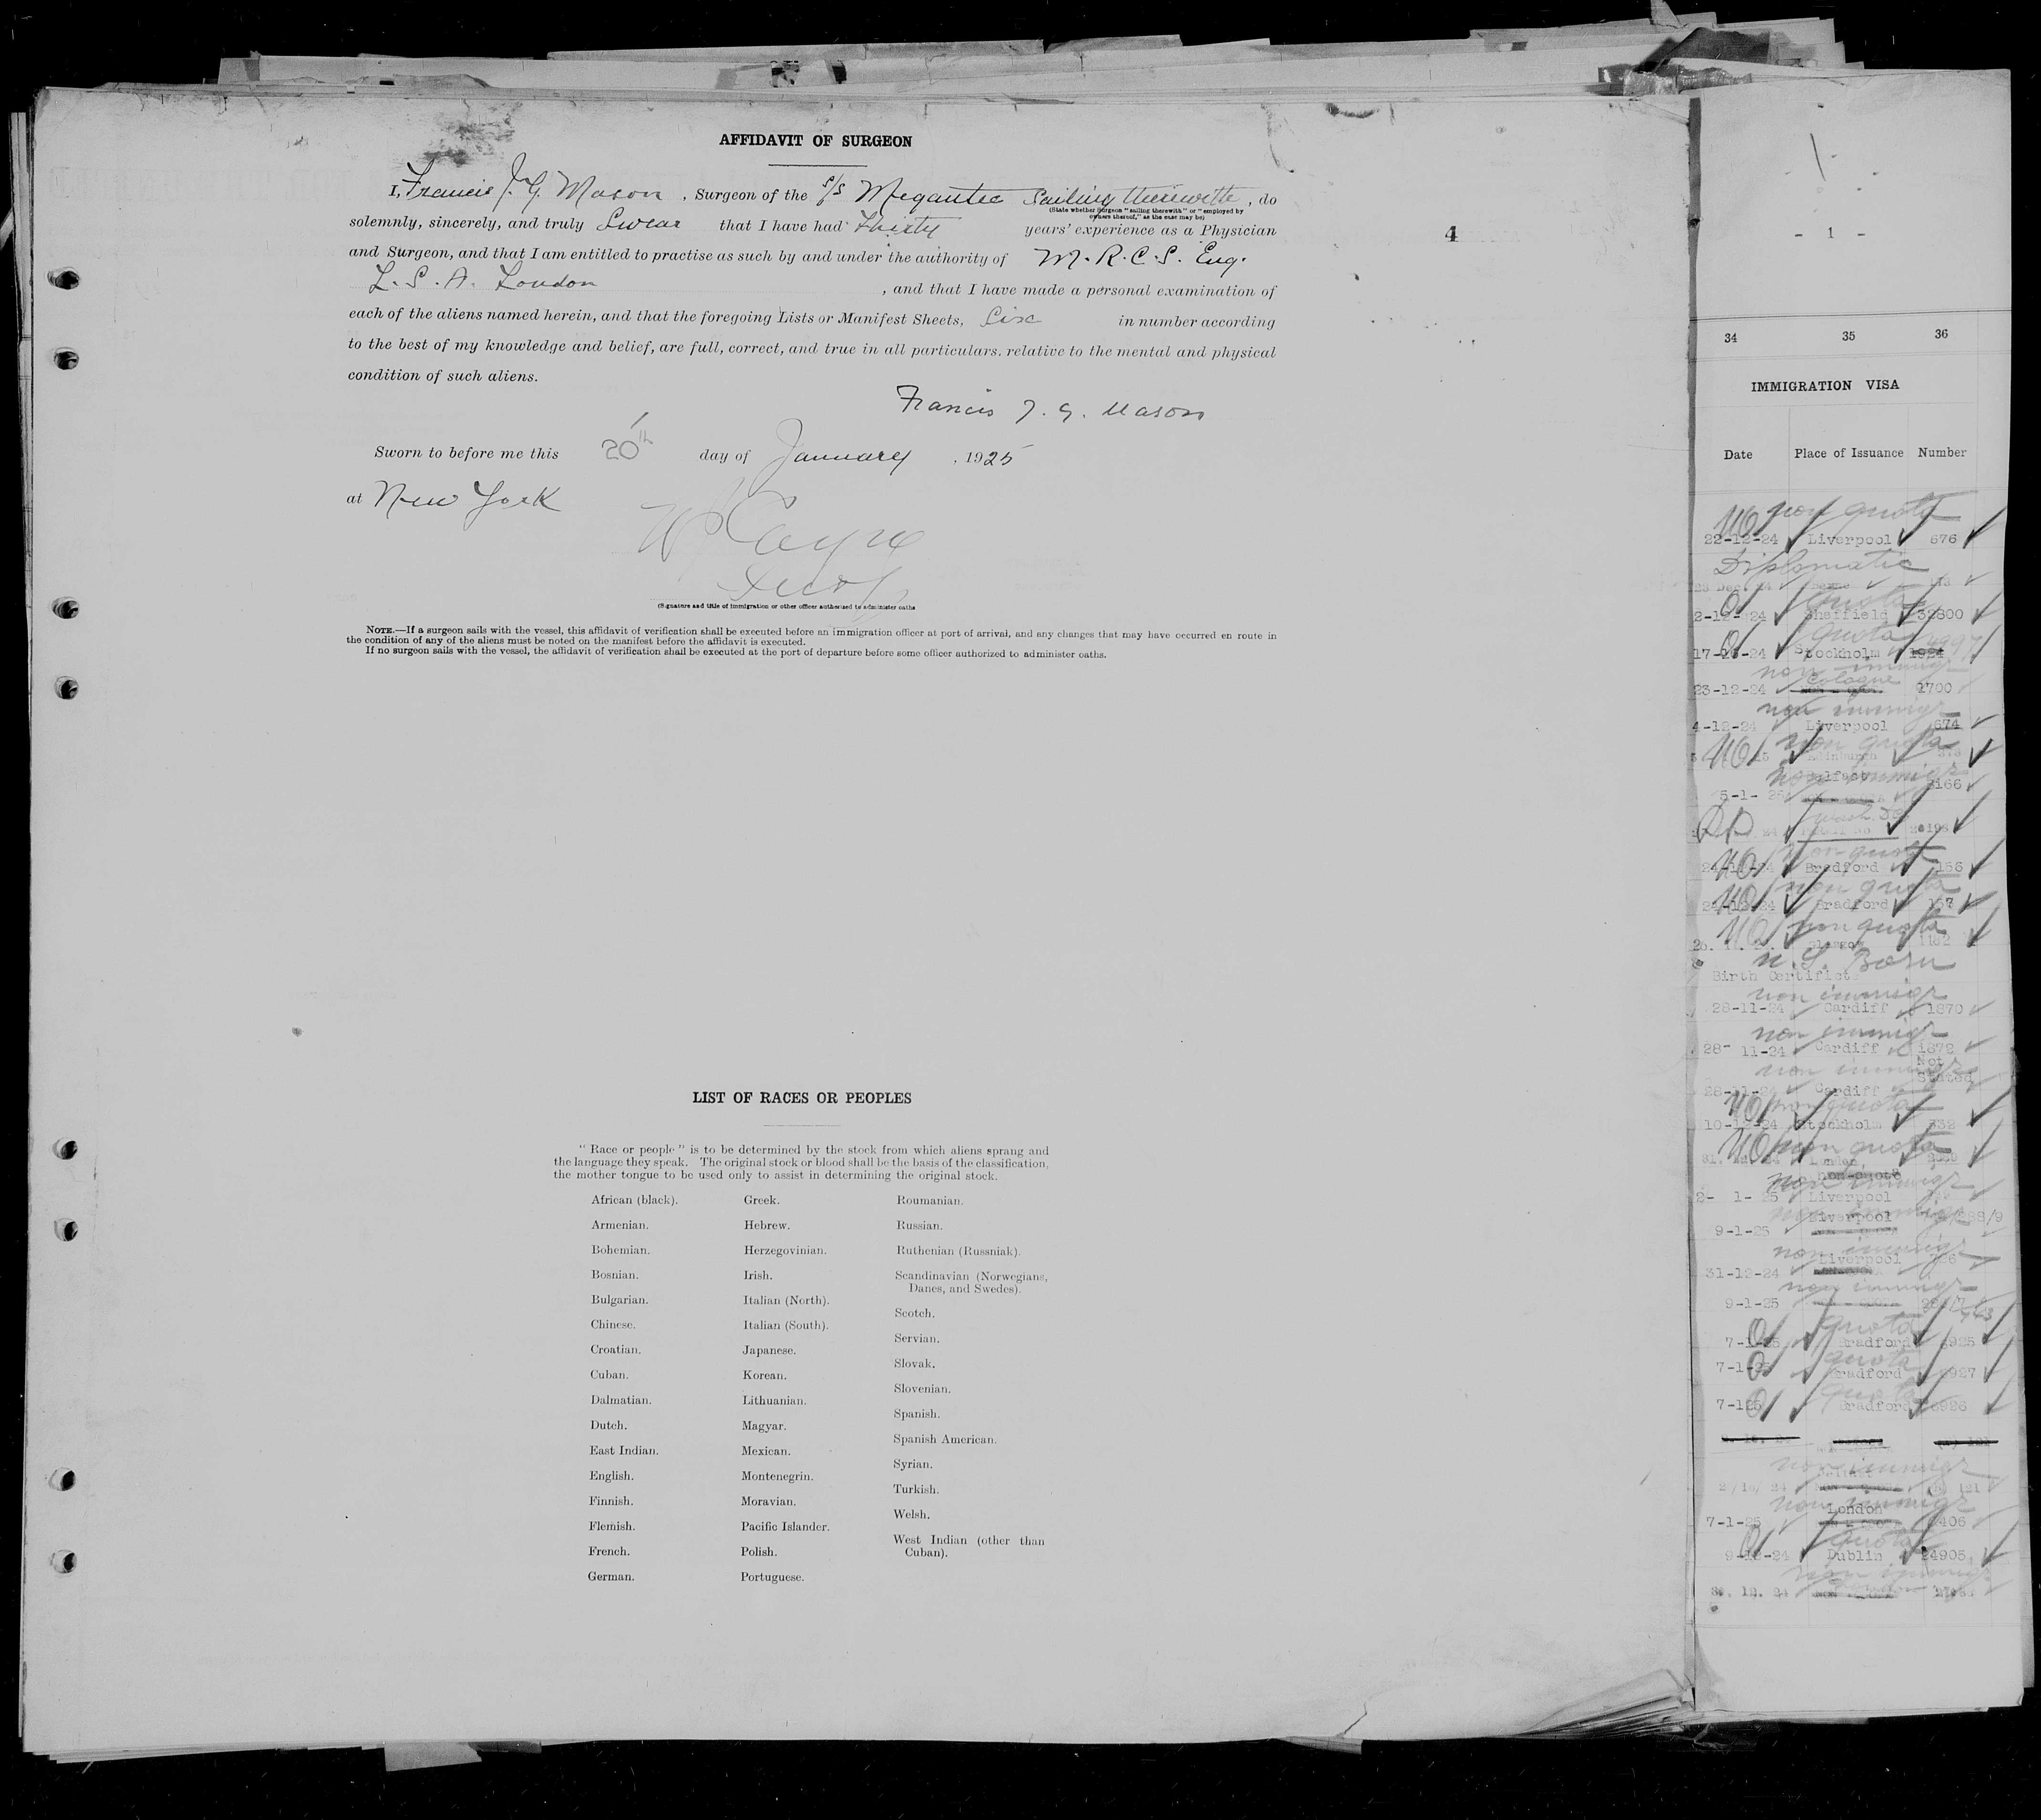 AFFIDAVIT OF SURGEON
I, Francis J. G. Mason, Surgeon of the s/s Megantic Sailing therewith, do
(State whether Surgeon "sailing therewith" or "employed by
owners thereof," as the case may be)
solemnly, sincerely, and truly Swear that I have had Thirty years' experience as a Physician
and Surgeon, and that I am entitled to practise as such by and under the authority of M.R.C.S. Eng.
L.S.A. London, and that I have made a personal examination of
each of the aliens named herein, and that the foregoing Lists or Manifest Sheets, Six in number according
to the best of my knowledge and belief, are full, correct, and true in all particulars, relative to the mental and physical
condition of such aliens.
Francis J. G. Mason
Sworn to before me this 20th day of January, 1925
at New York
(Signature and title of immigration or other officer authorized to administer oaths
NOTE.—If a surgeon sails with the vessel, this affidavit of verification shall be executed before an immigration officer at port of arrival, and any changes that may have occurred en route in
the condition of any of the aliens must be noted on the manifest before the affidavit is executed.
If no surgeon sails with the vessel, the affidavit of verification shall be executed at the port of departure before some officer authorized to administer oaths.
4
LIST OF RACES OR PEOPLES
"Race or people" is to be determined by the stock from which aliens sprang and
the language they speak. The original stock or blood shall be the basis of the classification,
the mother tongue to be used only to assist in determining the original stock.
African (black).
Armenian.
Bohemian.
Bosnian.
Bulgarian.
Chinese.
Croatian.
Cuban.
Dalmatian.
Dutch.
East Indian.
English.
Finnish.
Flemish.
French.
German.
Greek.
Hebrew.
Herzegovinian.
Irish.
Italian (North).
Italian (South).
Japanese.
Korean.
Lithuanian.
Magyar.
Mexican.
Montenegrin.
Moravian.
Pacific Islander.
Polish.
Portuguese.
Roumanian.
Russian.
Ruthenian (Russniak).
Scandinavian (Norwegians,
Danes, and Swedes).
Scotch.
Servian.
Slovak.
Slovenian.
Spanish.
Spanish American.
Syrian.
Turkish.
Welsh.
West Indian (other than
Cuban).
- 1 -
34 35 36
IMMIGRATION VISA
Date Place of Issuance Number
non quota
22-12-24 Liverpool 676
Diplomatic
quota
Sheffield 32800
quota
Stockholm
non immigr
Cologne
23-12-24 1700
non immigr
4-12-24 Liverpool 674
non quota
Edinburgh
non immigr
Belfast
5-1-25 166
non quota
Bradford 156
non quota
Bradford 157
non quota
Glasgow
U.S. Born
Birth Certifict
non immigr
28-11-24 Cardiff 1870
non immigr
28-11-24 Cardiff 1872
non immigr
Not
Stated
28-11-24 Cardiff
non quota
10-12-24 Stockholm 332
non quota
London
non immigr
2-1-25 Liverpool
non immigr
Liverpool
9-1-25
non immigr
Liverpool
31-12-24
non immigr
9-1-25
quota
7-1-25 Bradford 6925
quota
7-1-25 Bradford 6927
quota
7-1-25 Bradford 6926
non immigr
Belfast
non immigr
London
7-1-25 406
quota
9-12-24 Dublin 24905
non immigr
London
30. 12. 24